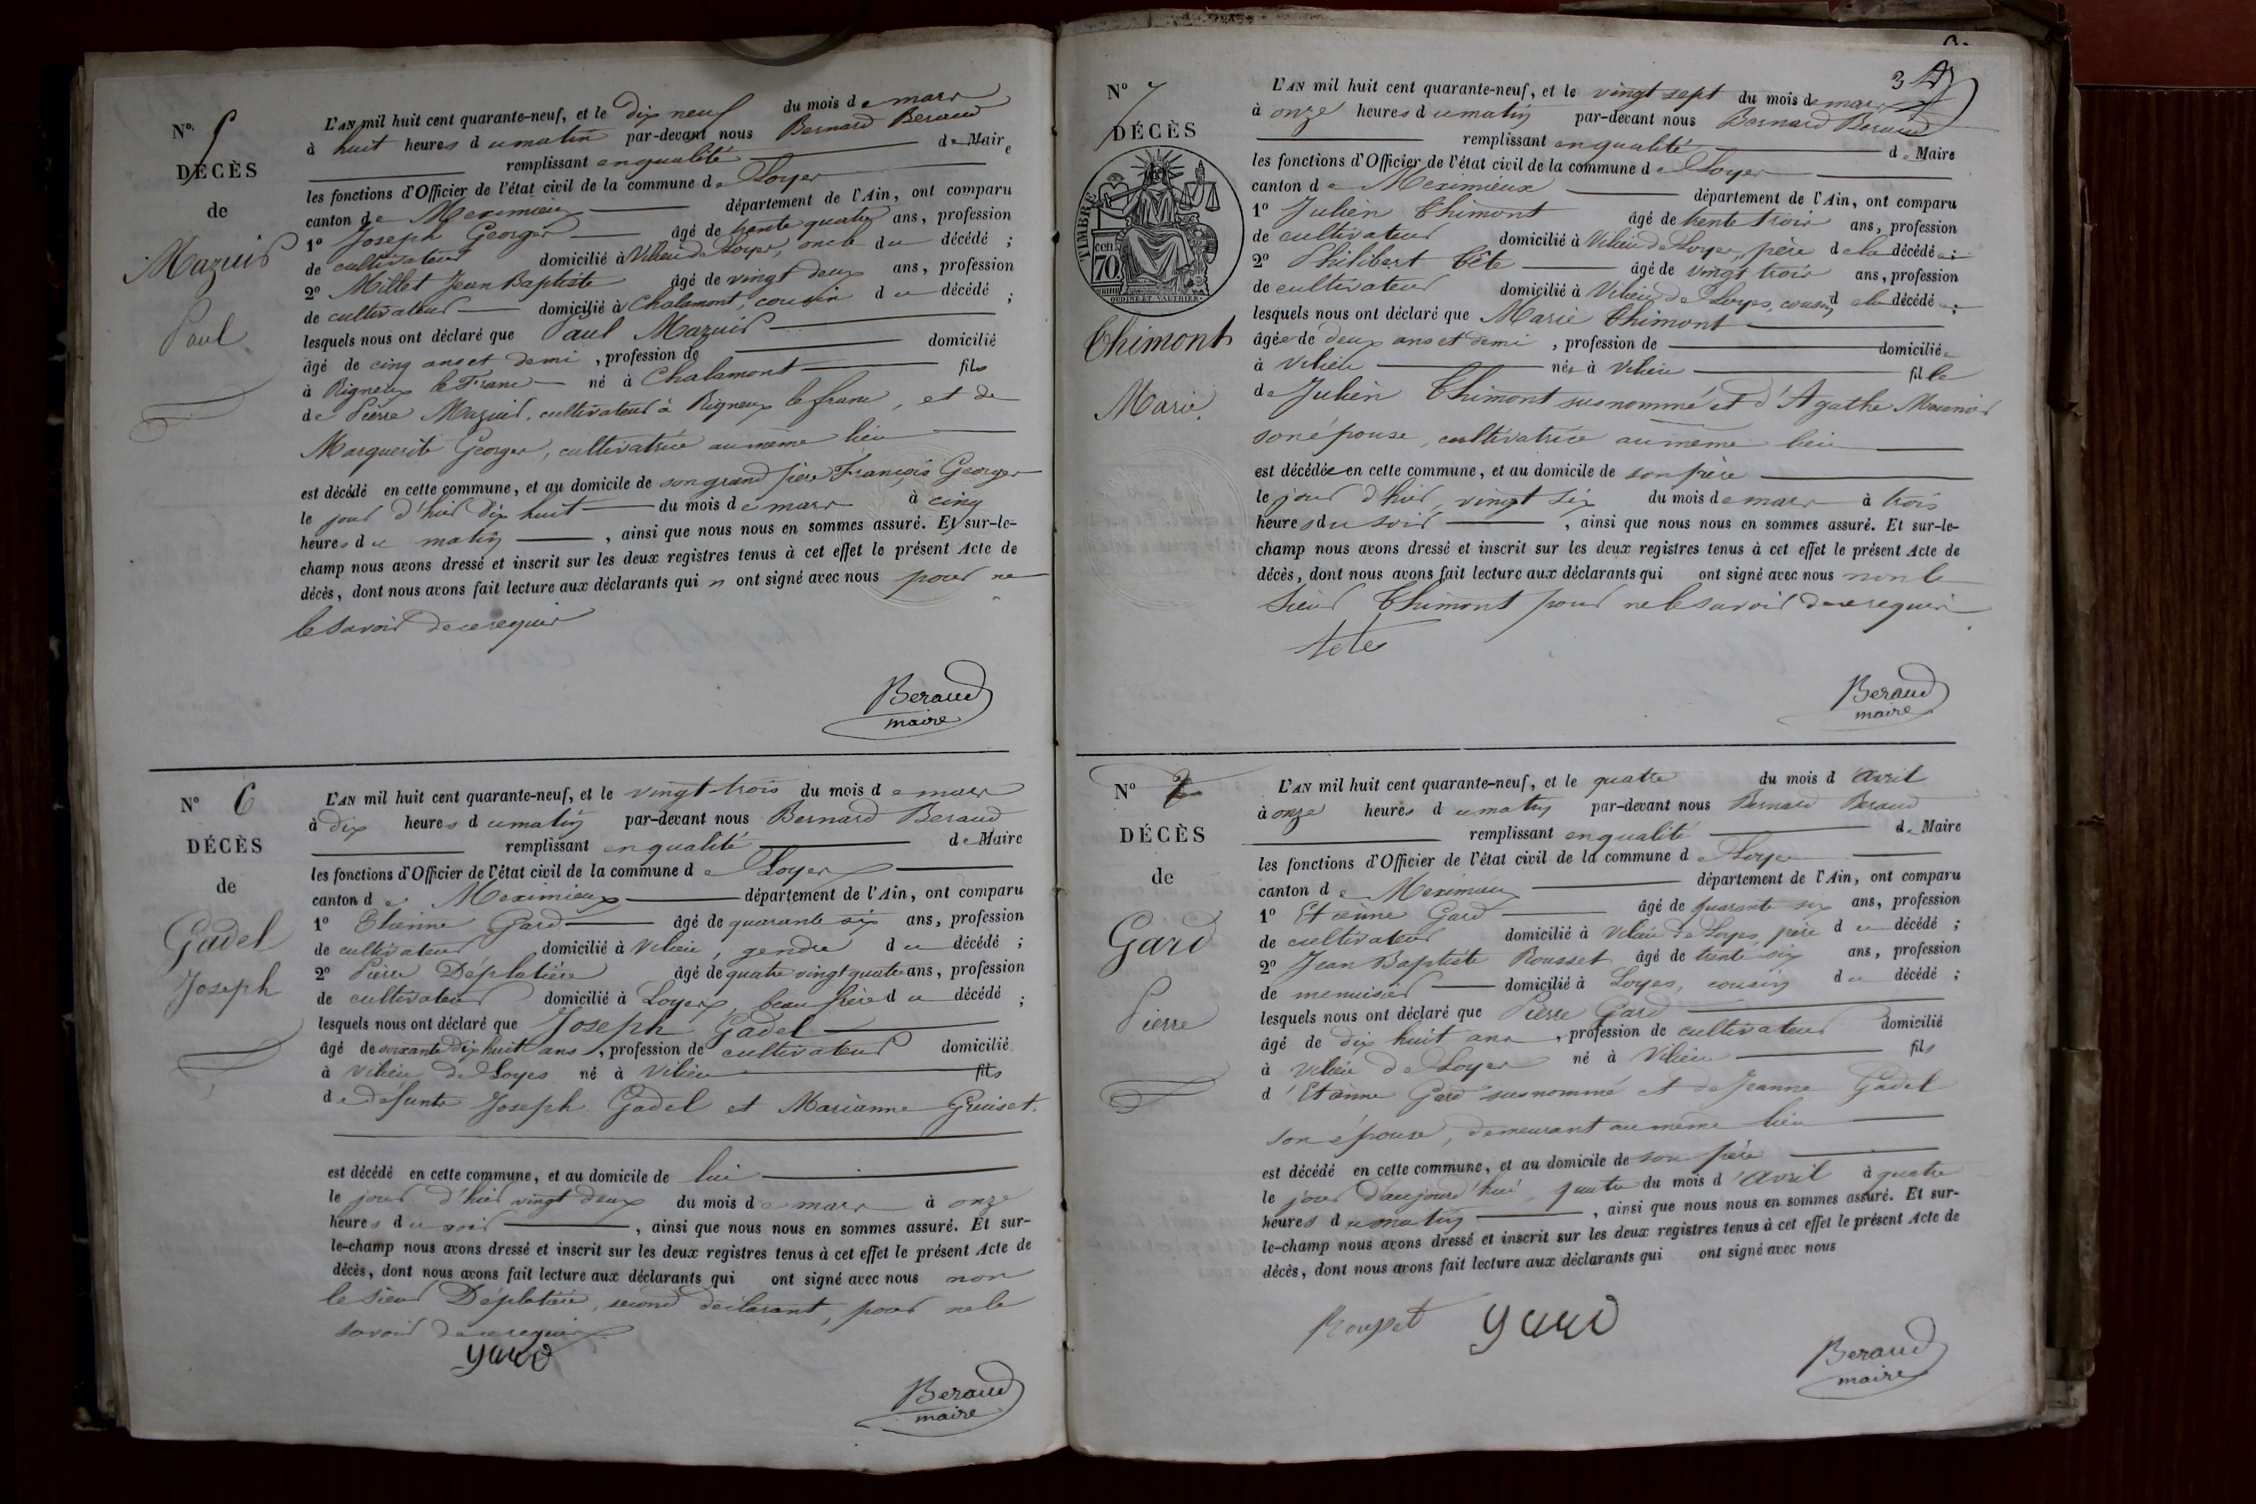 N° 5
DÉCÈS
de
Mazuir
Paul
L'AN mil huit cent quarante-neuf, et le dix neuf du mois de mars
à huit heures du matin par-devant nous Bernard Beraud
remplissant en qualité de Maire
les fonctions d'Officier de l'état civil de la commune de Loyes
canton de Meximieux département de l'Ain, ont comparu
1° Joseph Georges âgé de trente quatre ans, profession
de cultivateur domicilié à Vilieu de Loyes, oncle du décédé ;
2° Millet Jean Baptiste âgé de vingt deux ans, profession
de cultivateur domicilié à Chalamont, cousin du décédé ;
lesquels nous ont déclaré que Paul Mazuir
âgé de cinq ans et demi, profession de domicilié
à Rigneux le Franc né à Chalamont fils
de Pierre Mazuir, cultivateur à Rigneux le franc, et de
Marguerite Georges, cultivatrice au même lieu
est décédé en cette commune, et au domicile de son grand père François Georges
le jour d'hier dix huit du mois de mars à cinq
heures du matin, ainsi que nous nous en sommes assuré. Et sur-le-
champ nous avons dressé et inscrit sur les deux registres tenus à cet effet le présent Acte de
décès, dont nous avons fait lecture aux déclarants qui n ont signé avec nous pour ne
le savoir de ce requis
Beraud
maire
N° 6
DÉCÈS
de
Gadel
Joseph
L'AN mil huit cent quarante-neuf, et le vingt trois du mois de mars
à dix heures du matin par-devant nous Bernard Beraud
remplissant en qualité de Maire
les fonctions d'Officier de l'état civil de la commune de Loyes
canton de Meximieux département de l'Ain, ont comparu
1° Etienne Gard âgé de quarante six ans, profession
de cultivateur domicilié à Vilieu, gendre du décédé ;
2° Pierre Déplatière âgé de quatre vingt quatre ans, profession
de cultivateur domicilié à Loyes, beau frère du décédé ;
lesquels nous ont déclaré que Joseph Gadel
âgé de soixante dix huit ans, profession de cultivateur domicilié
à Vilieu de Loyes né à Vilieu fils
de défunts Joseph Gadel et Marianne Guiset.
est décédé en cette commune, et au domicile de lui
le jour d'hier vingt deux du mois de mars à onze
heures du soir, ainsi que nous nous en sommes assuré. Et sur-
le-champ nous avons dressé et inscrit sur les deux registres tenus à cet effet le présent Acte de
décès, dont nous avons fait lecture aux déclarants qui ont signé avec nous non
le sieur Déplatière, second déclarant, pour ne le
savoir de ce requis
gard
Beraud
maire
3
N° 7
DÉCÈS
TIMBRE
70 cen
OUDINÉ ET VAUTHIER
Thimont
Marie
L'AN mil huit cent quarante-neuf, et le vingt sept du mois de mars
à onze heures du matin par-devant nous Bernard Beraud
remplissant en qualité de Maire
les fonctions d'Officier de l'état civil de la commune de Loyes
canton de Meximieux département de l'Ain, ont comparu
1° Julien Thimont âgé de trente trois ans, profession
de cultivateur domicilié à Vilieu de Loyes, père de la décédée ;
2° Philibert Tête âgé de vingt trois ans, profession
de cultivateur domicilié à Vilieu de Loyes, cousin de la décédée ;
lesquels nous ont déclaré que Marie Thimont
âgée de deux ans et demi, profession de domiciliée
à Vilieu née à Vilieu fille
de Julien Thimont susnommé et d'Agathe
son épouse, cultivatrice au même lieu
est décédée en cette commune, et au domicile de son père
le jour d'hier, vingt six du mois de mars à trois
heures du soir, ainsi que nous nous en sommes assuré. Et sur-le-
champ nous avons dressé et inscrit sur les deux registres tenus à cet effet le présent Acte de
décès, dont nous avons fait lecture aux déclarants qui ont signé avec nous non le
sieur Thimont pour ne le savoir de ce requis
tetes
Beraud
maire
N°
DÉCÈS
de
Gard
Pierre
L'AN mil huit cent quarante-neuf, et le quatre du mois d'avril
à onze heures du matin par-devant nous Bernard Beraud
remplissant en qualité de Maire
les fonctions d'Officier de l'état civil de la commune de Loyes
canton de Meximieux département de l'Ain, ont comparu
1° Etienne Gard âgé de quarante six ans, profession
de cultivateur domicilié à Vilieu de Loyes, père du décédé ;
2° Jean Baptiste Rousset âgé de trente six ans, profession
de menuisier domicilié à Loyes, cousin du décédé ;
lesquels nous ont déclaré que Pierre Gard
âgé de dix huit ans, profession de cultivateur domicilié
à Vilieu de Loyes né à Vilieu fils
d'Etienne Gard susnommé et de Jeanne Gadel
son épouse, demeurant au même lieu
est décédé en cette commune, et au domicile de son père
le jour d'aujourd'hui, quatre du mois d'avril à quatre
heures du matin, ainsi que nous nous en sommes assuré. Et sur-
le-champ nous avons dressé et inscrit sur les deux registres tenus à cet effet le présent Acte de
décès, dont nous avons fait lecture aux déclarants qui ont signé avec nous
Rousset gard
Beraud
maire